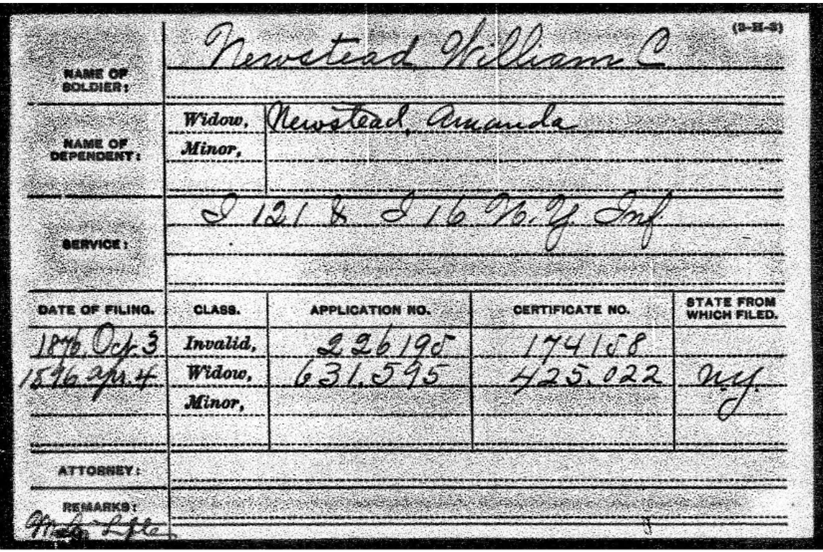 (3-H-3)
NAME OF SOLDIER: Newstead William C
NAME OF DEPENDENT: Widow, Newstead, Amanda
Minor,
SERVICE: I 121 & I 16 N.Y. Inf.
DATE OF FILING. CLASS. APPLICATION NO. CERTIFICATE NO. STATE FROM WHICH FILED.
1876, Oct. 3 Invalid, 226195 174158
1896 Apr. 4 Widow, 631.595 425.022 N.Y.
Minor,
ATTORNEY:
REMARKS: